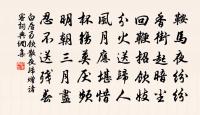 鞍馬夜紛紛
香街起暗塵
回鞭招飲妓
分火送歸人
風月應堪惜
杯觴莫厭頻
明朝三月盡
忍不送殘春
白居易飲散夜歸贈諸
客詞典網集